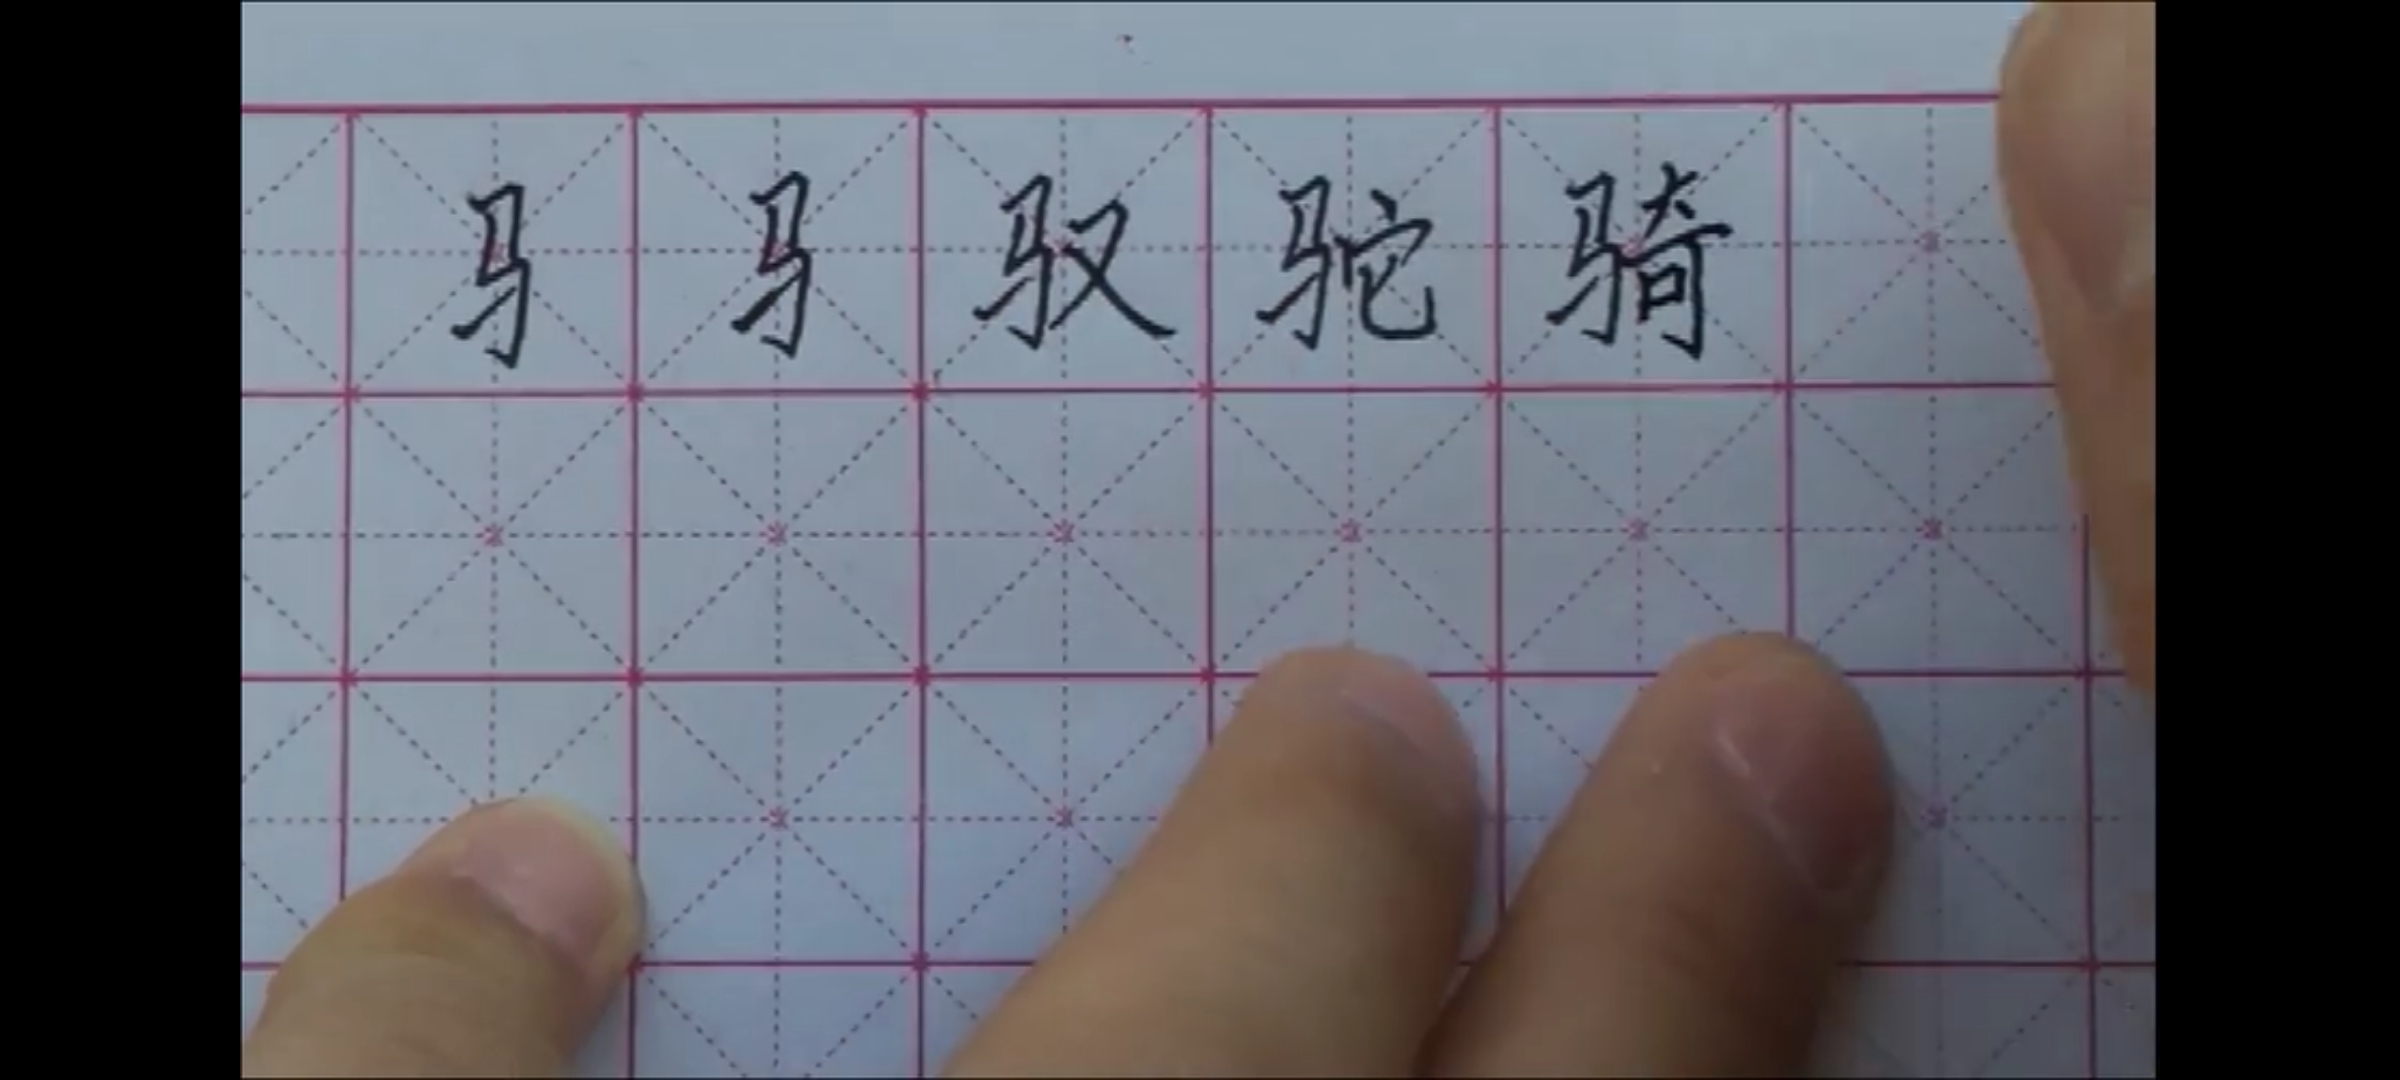 马 马 驭 驼 骑